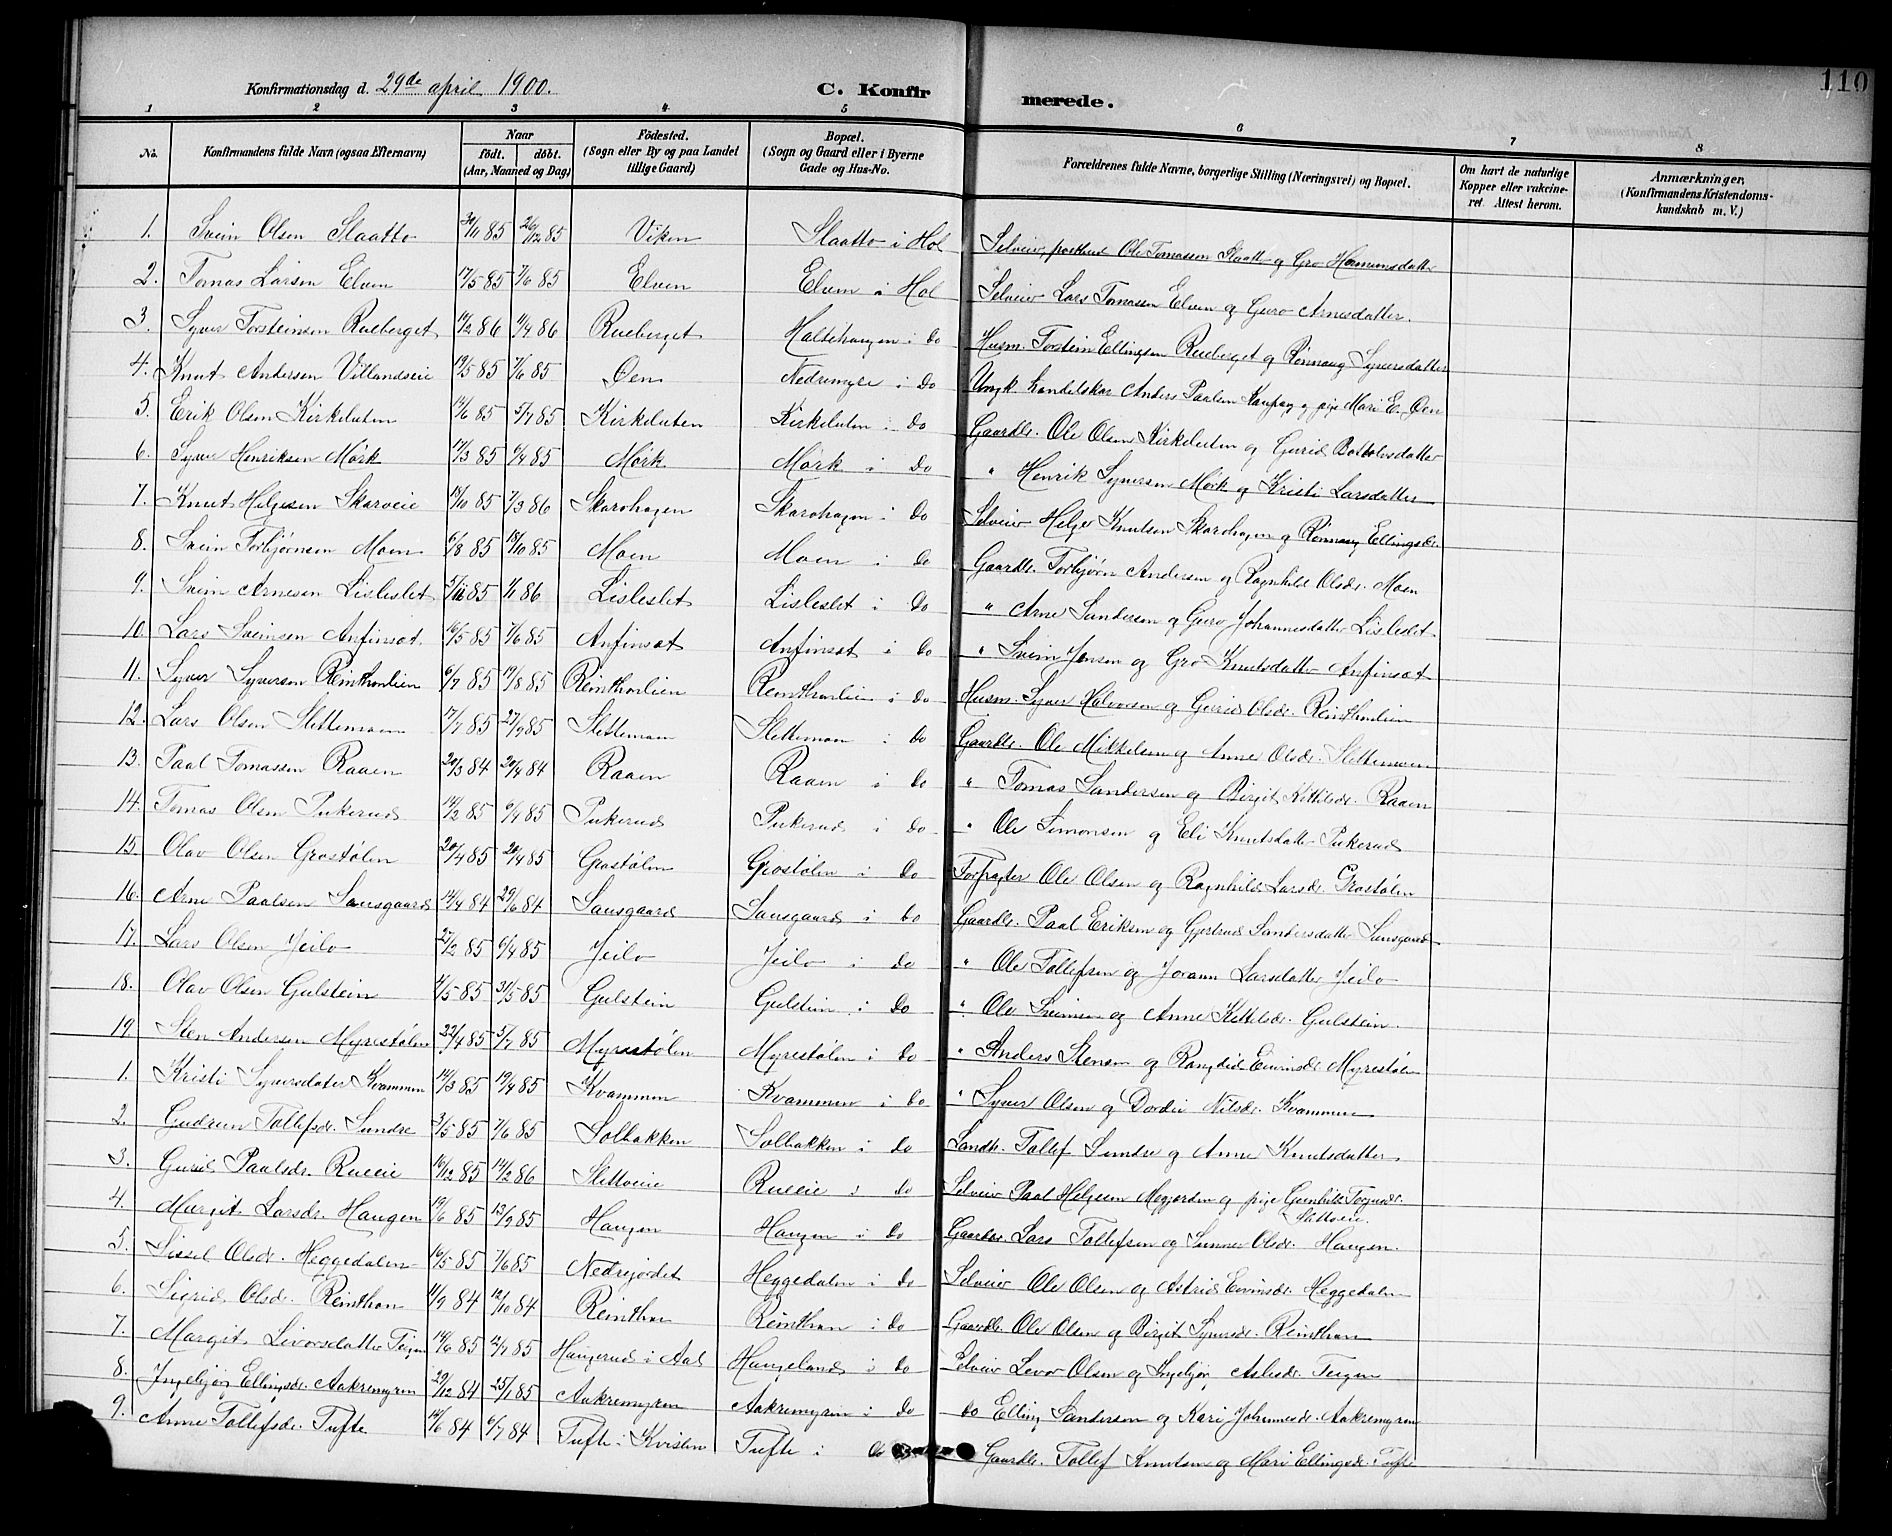 110
Konfirmationsdag d. 29de april 1900. C. Konfirmerede.
1 2 3 4 5 6 7 8
No. Konfirmandens fulde Navn (ogsaa Efternavn) Naar født. døbt. (Aar, Maaned og Dag) Födested. (Sogn eller By og paa Landet tillige Gaard) Bopæl. (Sogn og Gaard eller i Byerne Gade og Hus-No. Forældrenes fulde Navne, borgerlige Stilling (Næringsvei) og Bopæl. Om havt de naturlige Kopper eller vakcineret. Attest herom. Anmærkninger, (Konfirmandens Kristendomskundskab m. V.)
1. Svein Olsen Slaatto 30/11 85 26/12 85 Viken Slaatto i Hol Selveier, postbud Ole Tomassen Slaatto og Gro Hermunsdatter
2. Tomas Larsen Elven 17/5 85 7/6 85 Elven Elven i Hol Selveier Lars Tomassen Elven og Guro Arnesdatter.
3. Syver Torsteinsen Rueberget 14/2 86 11/4 86 Rueberget Haltehaugen i do Husm. Torstein Ellingsen Rueberget og Rønnaug Syversdatter
4. Knut Andersen Villandseie 19/5 85 7/6 85 Øen Nedremyre i do Ungk. handelskar Anders Paalsen Kaupang og pige Mari E. Øen
5. Erik Olsen Kirkeluten 12/6 85 5/7 85 Kirkeluten Kirkeluten i do Gaardbr. Ole Olsen Kirkeluten og Gurid Bottolvsdatter
6. Syver Henriksen Mørk 17/3 85 6/4 85 Mørk Mørk i do " Henrik Syversen Mørk og Kristi Larsdatter
7. Knut Helgesen Skarveie 18/10 85 7/3 86 Skarohagen Skarohagen i do Selveier Helge Knutsen Skarohagen og Rønnaug Ellingsdr.
8. Svein Torbjørnsen Moen 6/8 85 18/10 85 Moen Moen i do Gaardbr. Torbjørn Andersen og Ragnhild Olsdr. Moen
9. Svein Arnesen Lisleslet 5/11 85 1/1 86 Lisleslet Lisleslet i do " Arne Sandersen og Guro Johannesdatter Lisleslet
10. Lars Sveinsen Anfinset 16/5 85 7/6 85 Anfinset Anfinset i do " Svein Jensen og Gro Knutsdatter Anfinset
11. Syver Syversen Reinthonlien 6/7 85 19/8 85 Reinthonlien Reinthonlien i do Husm. Syver Halvorsen og Gurid Olsdr. Reinthonlien
12. Lars Olsen Slettemoen 17/7 85 27/9 85 Slettemoen Slettemoen i do Gaardbr. Ole Mikkelsen og Anne Olsdr. Slettemoen
13. Paal Tomassen Raaen 20/3 84 20/4 84 Raaen Raaen i do " Tomas Sandersen og Birgit Kittilsdr. Raaen
14. Tomas Olsen Pukerud 14/2 85 6/4 85 Pukerud Pukerud i do " Ole Simonsen og Eli Knutsdatter Pukerud
15. Olav Olsen Grostølen 20/4 85 20/4 85 Grostølen Grostølen i do Forpagter Ole Olsen og Ragnhild Larsdr. Grostølen
16. Arne Paalsen Sausgaard 14/4 84 29/6 84 Sausgaard Sausgaard i do Gaardbr. Paal Eriksen og Gjertrud Sandersdatter Sausgaard
17. Lars Olsen Jeilo 27/2 85 6/4 85 Jeilo Jeilo i do " Ole Tollefsen og Jorann Larsdatter Jeilo
18. Olav Olsen Gulstein 4/5 85 31/5 85 Gulstein Gulstein i do " Ole Sveinsen og Anne Kittilsdr. Gulstein.
19. Sten Andersen Myrestølen 22/4 85 5/7 85 Myrestølen Myrestølen i do " Anders Stensen og Rangdid Eivinsdr. Myrestølen
1. Kristi Syversdatter Kvammen 14/3 85 19/4 85 Kvammen Kvammen i do " Syver Olsen og Dordi Nilsdr. Kvammen
2. Gudrun Tollefsdr. Sundre 3/5 85 7/6 85 Solbakken Solbakken i do Landh. Tollef Sundre og Anne Knutsdatter
3. Guril Paalsdr. Rueeie 10/12 85 14/2 86 Sletteeie Rueeie i do Selveier Paal Helgesen Mejorden og pige Gunhild Torgusdr. Sletteeie.
4. Margit Larsdr. Haugen 19/6 85 13/9 85 Haugen Haugen i do Gaardbr. Lars Tollefsen og Sunnev Olsdr. Haugen.
5. Sissel Olsdr. Heggedalen 10/5 85 7/6 85 Nedrejordet Heggedalen i do Selveier Ole Olsen og Astrid Eivinsdr. Heggedalen
6. Sigrid Olsdr. Reinthon 11/9 84 12/10 84 Reinthon Reinthon i do Gaardbr. Ole Olsen og Birgit Syversdr. Reinthon
7. Margit Livorsdatter Teigen 14/6 85 12/7 85 Haugerud i Aal Haugeland i do Selveier Levor Olsen og Ingebjør Aslesdr. Teigen
8. Ingebjør Ellingsdr. Aakremyren 29/12 84 25/1 85 Aakremyren Aakremyren i do do Elling Sandersen og Kari Johannesdr. Aakremyren
9. Anne Tollefsdr. Tufte 14/6 84 6/7 84 Tufte i Kvislen Tufte i do Gaardbr. Tollef Knutsen og Mari Ellingsdr. Tufte